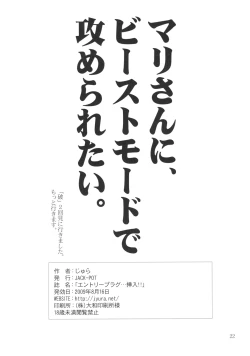 マリさんに、
ビーストモードで
攻められたい。
「破」2回死に行きました。
もっと行きます。
作　者：じゅら
発　行：JACK-POT
誌　名：『エントリープラグ…挿入!!』
発効日：2009年8月16日
WEBSITE：http://jyura.net/
印刷所：(株)大和印刷所様
18歳未満閲覧禁止
22